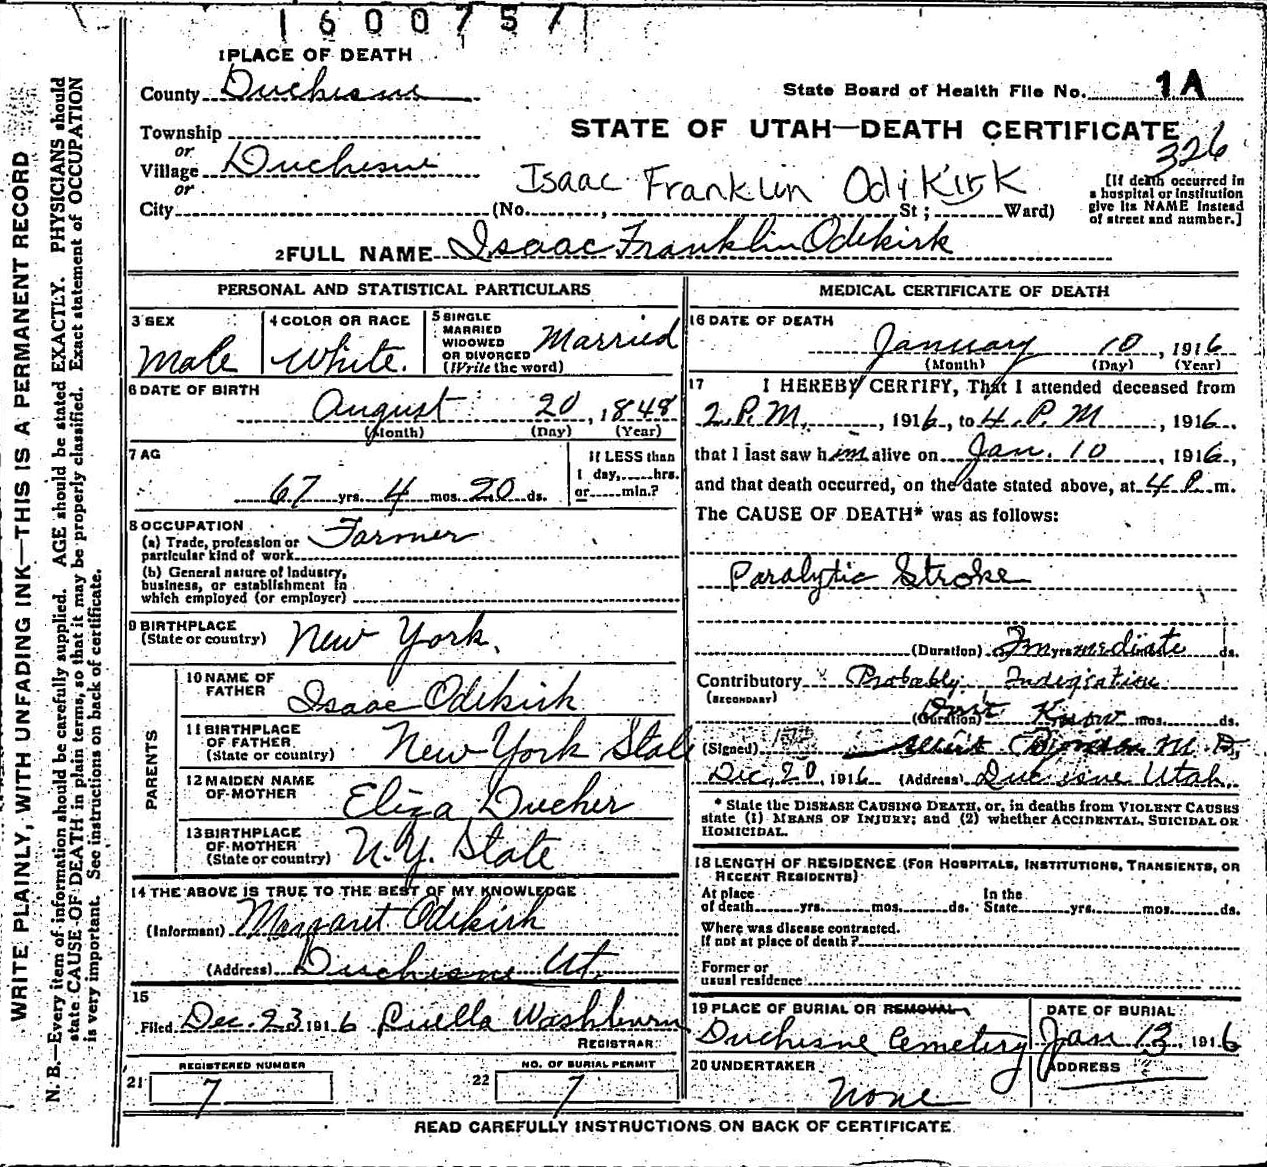 1600757
1 PLACE OF DEATH
County Duchesne
State Board of Health File No. 1A
Township
or
STATE OF UTAH—DEATH CERTIFICATE
326
Village Duchesne
or
Isaac Franklin Odikirk
[If death occurred in
a hospital or institution
give its NAME instead
of street and number.]
City (No. , St; Ward)
2 FULL NAME Isaac Franklin Odekirk
PERSONAL AND STATISTICAL PARTICULARS
3 SEX
Male
4 COLOR OR RACE
White.
5 SINGLE
MARRIED
WIDOWED
OR DIVORCED
(Write the word)
Married
6 DATE OF BIRTH
August 20, 1848
(Month) (Day) (Year)
7 AG
67 yrs. 4 mos. 20 ds.
if LESS than
1 day, hrs.
or min.?
8 OCCUPATION
(a) Trade, profession or
particular kind of work
Farmer
(b) General nature of Industry,
business, or establishment in
which employed (or employer)
9 BIRTHPLACE
(State or country) New York.
PARENTS
10 NAME OF
FATHER
Isaac Odekirk
11 BIRTHPLACE
OF FATHER
(State or country)
New York State
12 MAIDEN NAME
OF MOTHER
Eliza Ducher
13 BIRTHPLACE
OF MOTHER
(State or country)
N.Y. State
14 THE ABOVE IS TRUE TO THE BEST OF MY KNOWLEDGE
(Informant) Margaret Odekirk
(Address) Duchesne Ut.
15
Filed Dec. 23 1916 Luella Washburn
REGISTRAR
REGISTERED NUMBER
21 7
NO. OF BURIAL PERMIT
22 7
MEDICAL CERTIFICATE OF DEATH
16 DATE OF DEATH
January 10, 1916
(Month) (Day) (Year)
17 I HEREBY CERTIFY, That I attended deceased from
2 P.M., 1916, to 4 P.M, 1916.
that I last saw him alive on Jan. 10, 1916,
and that death occurred, on the date stated above, at 4 P. m.
The CAUSE OF DEATH* was as follows:
Paralytic Stroke
(Duration) Immediate yrs. ds.
Contributory Probably Indigestion
(SECONDARY)
(Duration) Don't Know mos. ds.
(Signed) M.D.
Dec, 20, 1916 (Address) Duchesne Utah.
* State the DISEASE CAUSING DEATH, or, in deaths from VIOLENT CAUSES
state (1) MEANS OF INJURY; and (2) whether ACCIDENTAL, SUICIDAL OR
HOMICIDAL.
18 LENGTH OF RESIDENCE (FOR HOSPITALS, INSTITUTIONS, TRANSIENTS, OR
RECENT RESIDENTS)
At place
of death yrs. mos. ds.
In the
State yrs. mos. ds.
Where was disease contracted.
If not at place of death?
Former or
usual residence
19 PLACE OF BURIAL OR REMOVAL
Duchesne Cemetery
DATE OF BURIAL
Jan 13, 1916
20 UNDERTAKER
None
ADDRESS
READ CAREFULLY INSTRUCTIONS ON BACK OF CERTIFICATE
WRITE PLAINLY, WITH UNFADING INK—THIS IS A PERMANENT RECORD
N. B.—Every item of information should be carefully supplied. AGE should be stated EXACTLY. PHYSICIANS should
state CAUSE OF DEATH in plain terms, so that it may be properly classified. Exact statement of OCCUPATION
is very important. See instructions on back of certificate.